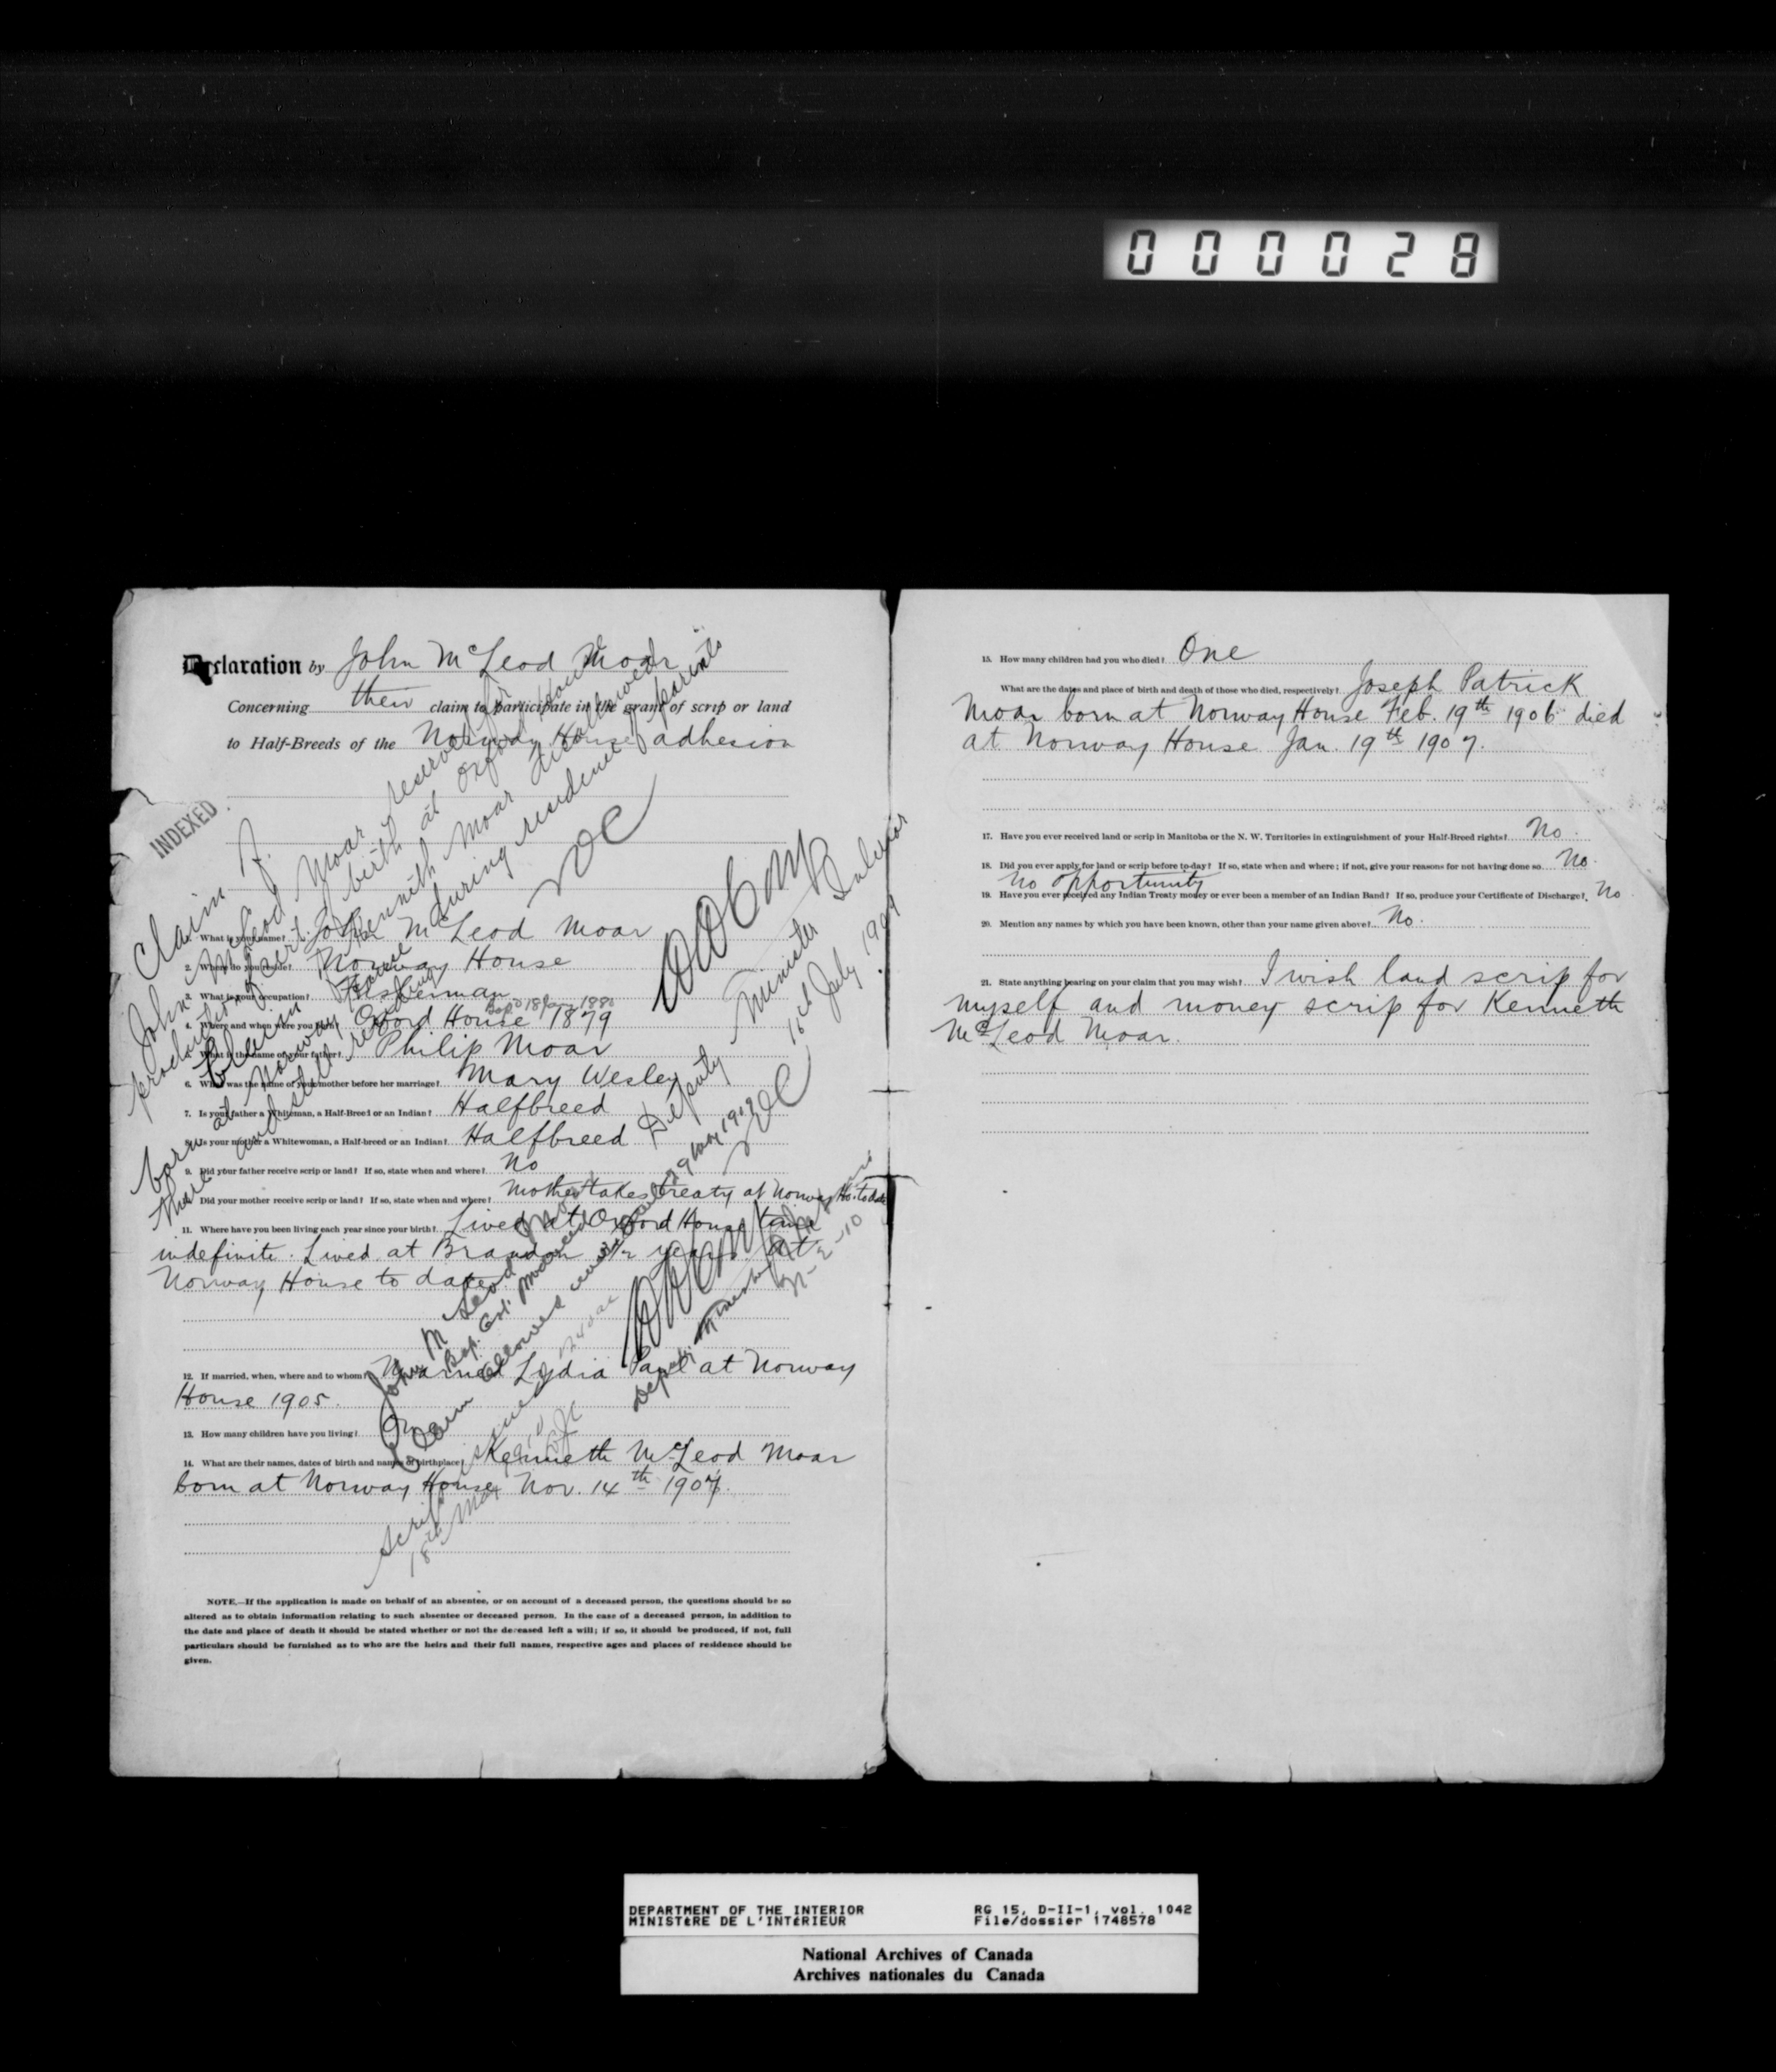 000028
Declaration by John McLeod Moar
Concerning their claim to participate in the grant of scrip or land
to Half-Breeds of the Norway House adhesion
INDEXED
Claim of
John McLeod Moar reserved for
production of cert. of birth at Oxford House
Claim of Kenneth Moar disallowed
born at Norway House during residence of parents
there and still residing
1. What is your name? John McLeod Moar
2. Where do you reside? Norway House
3. What is your occupation? Fisherman
Bap'd 18 Jany 1880
4. Where and when were you born? Oxford House 1879
5. What is the name of your father? Philip Moar
6. What was the name of your mother before her marriage? Mary Wesley
7. Is your father a Whiteman, a Half-Breed or an Indian? Halfbreed
8. Is your mother a Whitewoman, a Half-breed or an Indian? Halfbreed
9. Did your father receive scrip or land? If so, state when and where? No
10. Did your mother receive scrip or land? If so, state when and where? Mother takes treaty at Norway Ho. to date
11. Where have you been living each year since your birth? Lived at Oxford House time
indefinite. Lived at Brandon 3½ years. At
Norway House to date.
Deputy Minister Interior
16th July 1909
John McLeod Moar
Bap. Cert. produced
Claim allowed
Deputy Minister
12. If married, when, where and to whom? Married Lydia Papel at Norway
House 1905.
13. How many children have you living? One
14. What are their names, dates of birth and names of birthplace? Kenneth McLeod Moar
born at Norway House Nov. 14th 1907.
Scrip issued
18th May 1910
NOTE.—If the application is made on behalf of an absentee, or on account of a deceased person, the questions should be so
altered as to obtain information relating to such absentee or deceased person. In the case of a deceased person, in addition to
the date and place of death it should be stated whether or not the deceased left a will; if so, it should be produced, if not, full
particulars should be furnished as to who are the heirs and their full names, respective ages and places of residence should be
given.
15. How many children had you who died? One
What are the dates and place of birth and death of those who died, respectively? Joseph Patrick
Moar born at Norway House Feb. 19th 1906 died
at Norway House Jan. 19th 1907.
17. Have you ever received land or scrip in Manitoba or the N. W. Territories in extinguishment of your Half-Breed rights? No.
18. Did you ever apply for land or scrip before to-day? If so, state when and where; if not, give your reasons for not having done so. No.
No opportunity
19. Have you ever received any Indian Treaty money or ever been a member of an Indian Band? If so, produce your Certificate of Discharge? No
20. Mention any names by which you have been known, other than your name given above? No.
21. State anything bearing on your claim that you may wish? I wish land scrip for
myself and money scrip for Kenneth
McLeod Moar.
DEPARTMENT OF THE INTERIOR RG 15, D-II-1, vol. 1042
MINISTÈRE DE L'INTÉRIEUR File/dossier 1748578
National Archives of Canada
Archives nationales du Canada